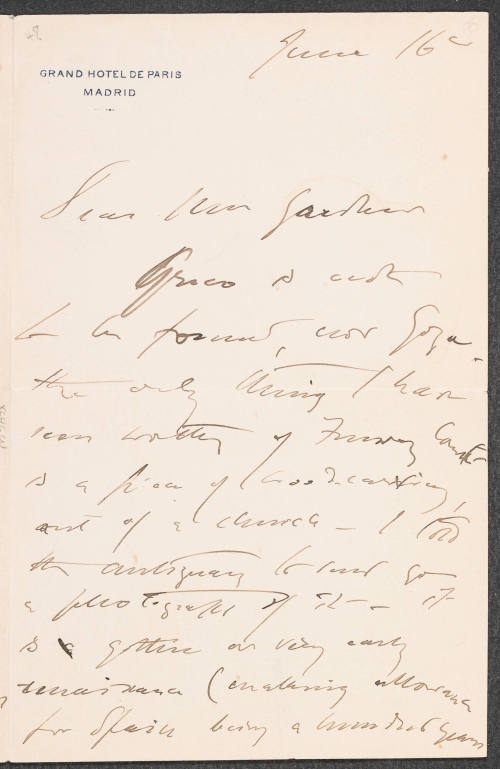 June 16th
GRAND HOTEL DE PARIS
MADRID
Dear Mrs Gardner
Greco is not
to be found, nor Goya -
the only thing I have
seen worthy of Fenway Court
is a piece of woodcarving,
out of a church - I told
the antiquary to send you
a photograph of it - it
is a gothic or very early
renaissance (making allowance
for Spain being a hundred years